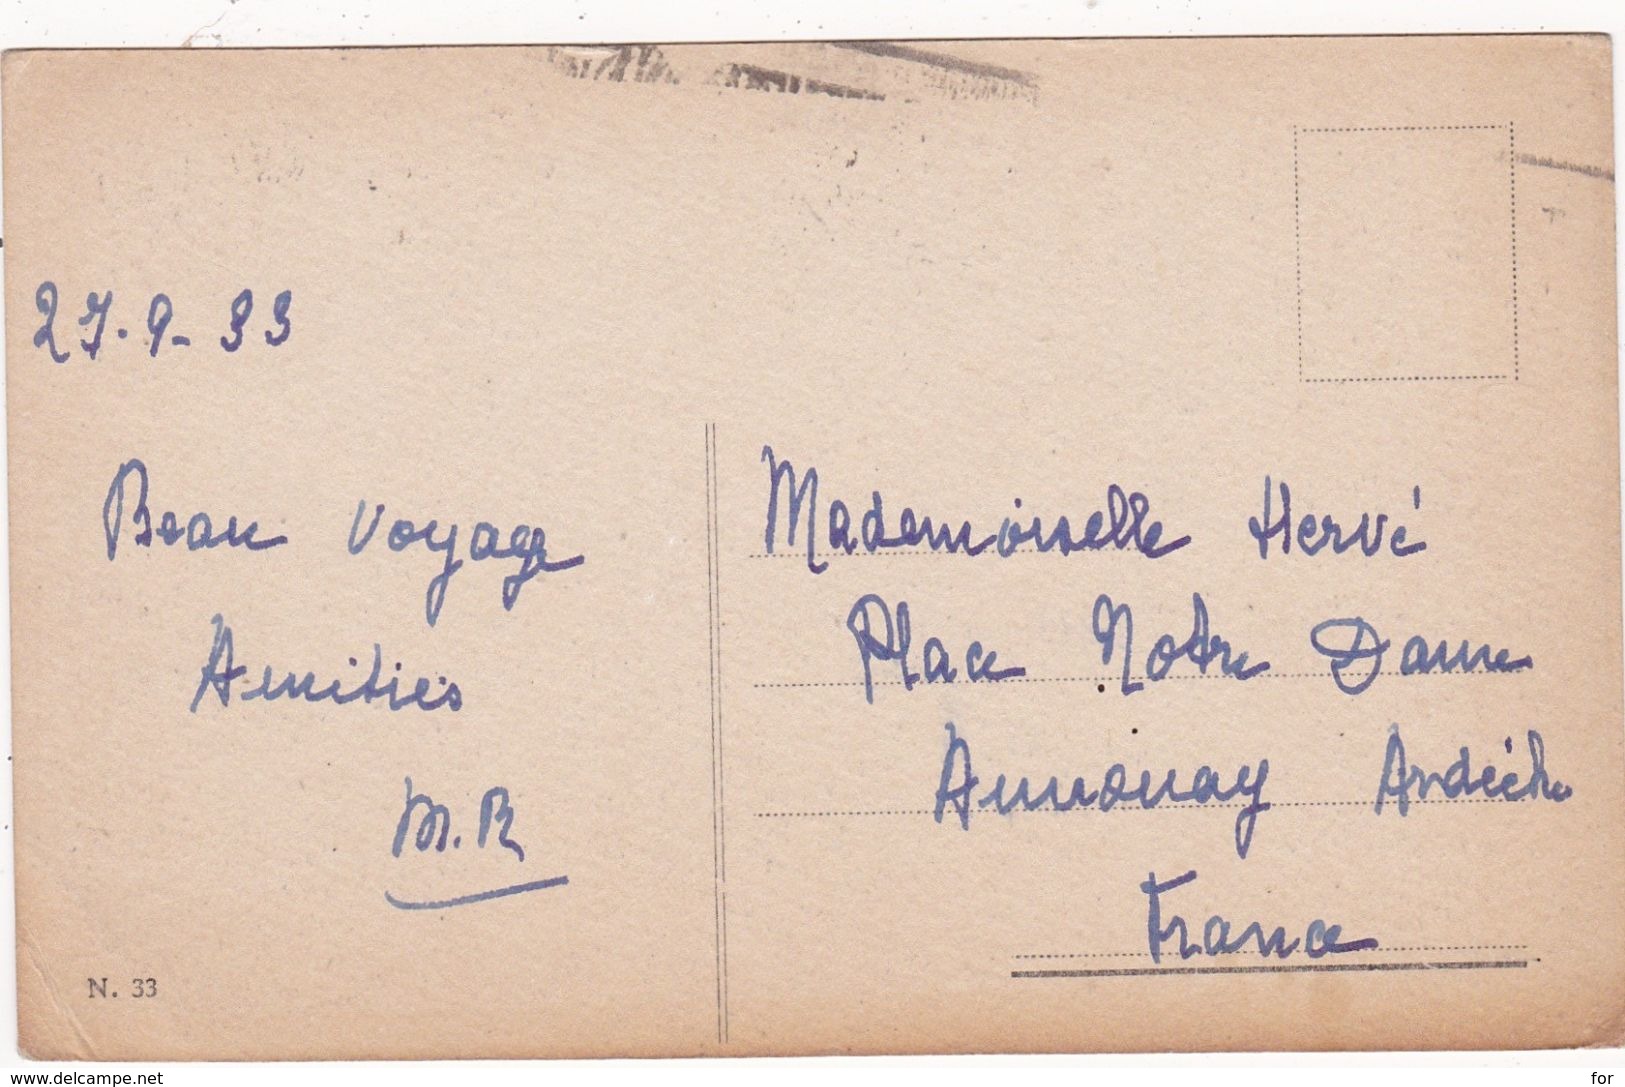 27.9-33
Beau voyage
Amitiés
M.R
Mademoiselle Hervé
Place Notre Dame
Annonay Ardèche
France
N. 33
www.delcampe.net
for